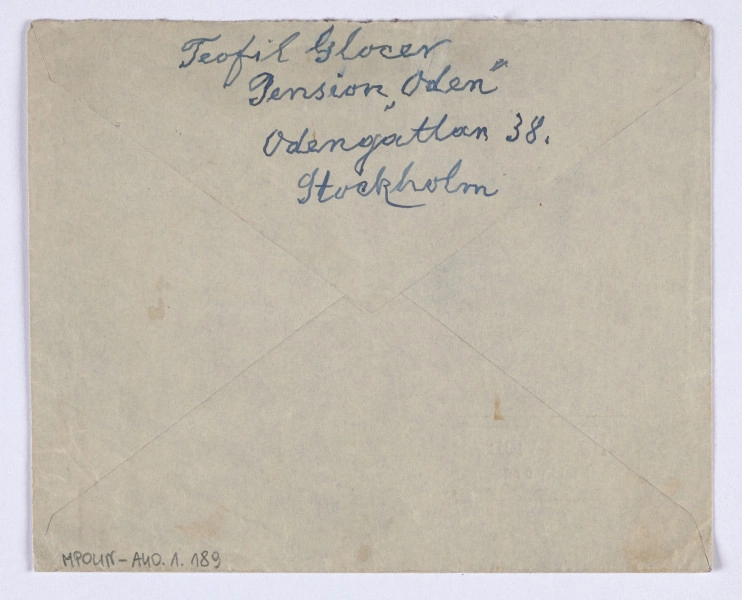 Teofil Glocer
Pension „Oden”
Odengatlan 38.
Stockholm
MPOLIN-AHO.1.189